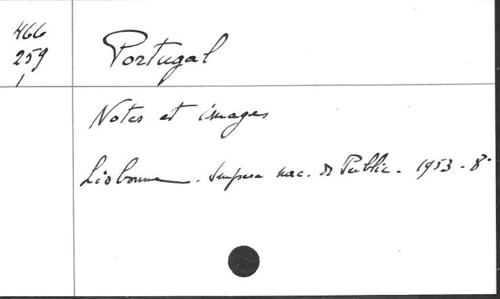 466
259
1
Portugal
Notes et images
Lisbonne. Impresa nac. de Public. 1953 - 8°